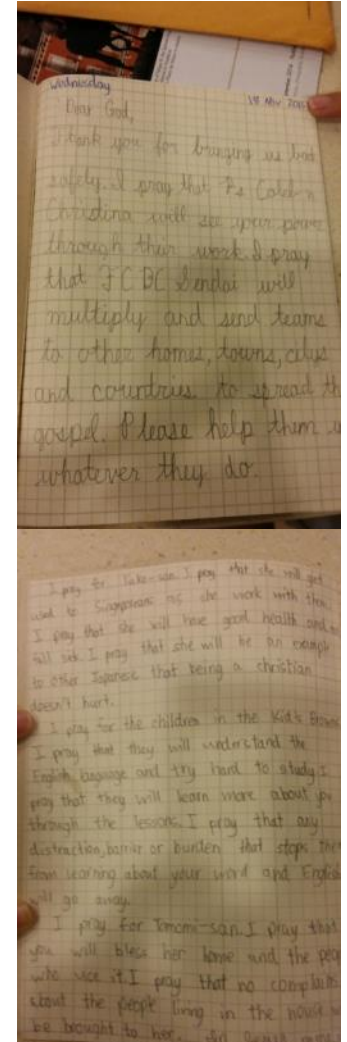 Wednesday
18 Nov
Dear God,
Thank you for bringing us
safely. I pray that Ps Caleb n
Christina will see your power
through their work. I pray
that FCBC Sendai will
multiply and send teams
to other homes, towns, citys
and countries to spread th
gospel. Please help them
whatever they do.
I pray for Take-san. I pray that she will get
used to Singaporeans as she work with them.
I pray that she will have good health and
fall sick. I pray that she will be an example
to other Japanese that being a christian
doesn't hurt.
I pray for the children in the Kid's
I pray that they will understand the
English language and try hard to study. I
pray that they will learn more about you
through the lessons. I pray that any
distraction, barrier or burden that stops them
from learning about your word and English
will go away.
I pray for Tomomi-san. I pray that
you will bless her home and the peop
who use it. I pray that no complaints
about the people living in the house
be brought to her.